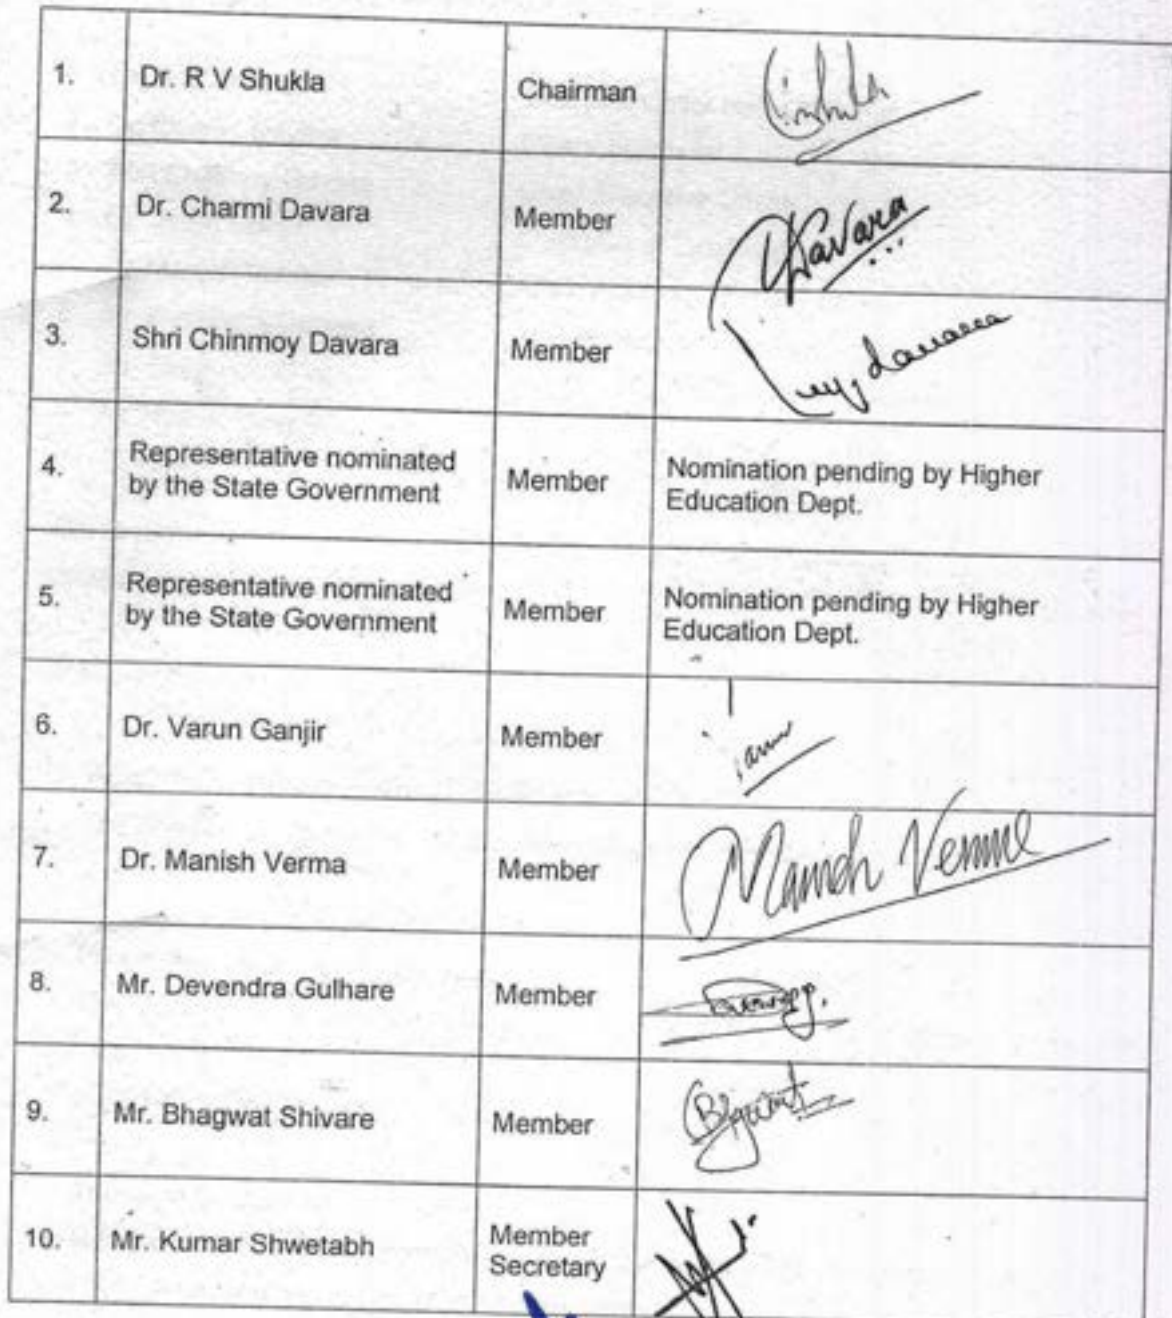 1. Dr. R V Shukla Chairman
2. Dr. Charmi Davara Member Davara
3. Shri Chinmoy Davara Member
4. Representative nominated
by the State Government Member Nomination pending by Higher
Education Dept.
5. Representative nominated
by the State Government Member Nomination pending by Higher
Education Dept.
6. Dr. Varun Ganjir Member
7. Dr. Manish Verma Member Manish Verma
8. Mr. Devendra Gulhare Member
9. Mr. Bhagwat Shivare Member
10. Mr. Kumar Shwetabh Member
Secretary